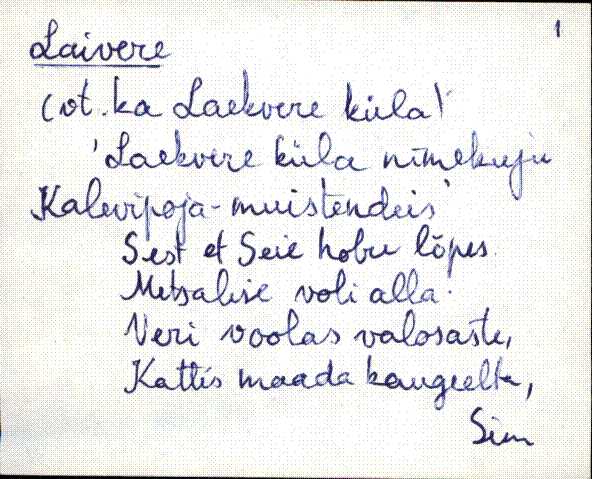 1
Laivere
(vt. ka Laekvere küla)
'Laekvere küla nimekuju
Kalevipoja-muistendeis'
Sest et Seie hobu lõpes
Metsalise voli alla.
Veri voolas valosaste,
Kattis maada kaugeelta,
Sim